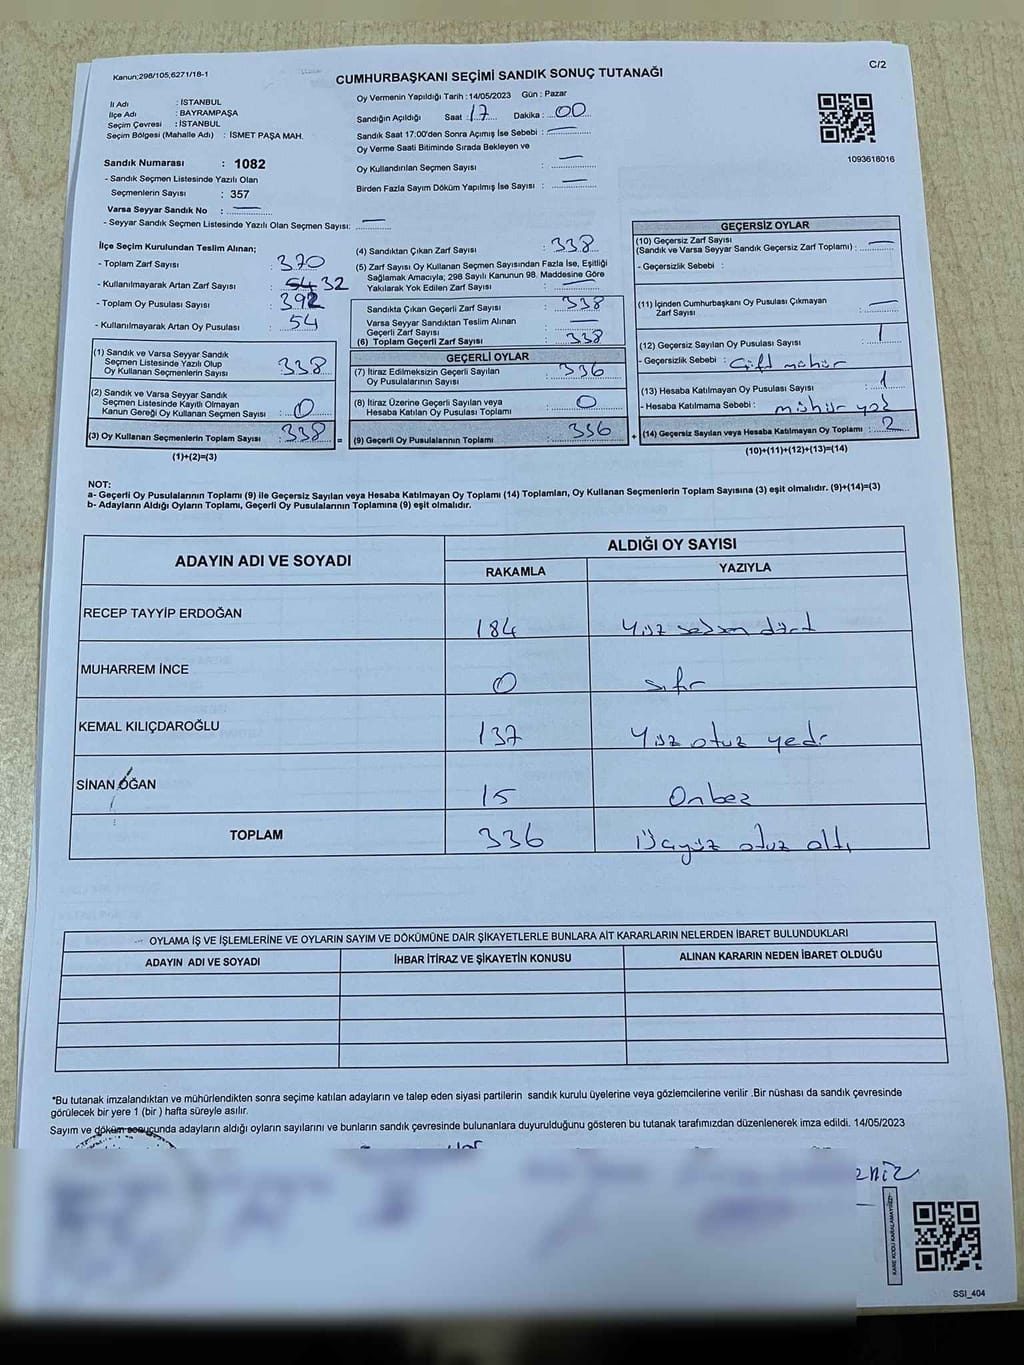 Kanun;298/105,6271/18-1
C/2
CUMHURBAŞKANI SEÇİMİ SANDIK SONUÇ TUTANAĞI
İl Adı : İSTANBUL
İlçe Adı : BAYRAMPAŞA
Seçim Çevresi : İSTANBUL
Seçim Bölgesi (Mahalle Adı) : İSMET PAŞA MAH.
Sandık Numarası : 1082
- Sandık Seçmen Listesinde Yazılı Olan
Seçmenlerin Sayısı : 357
Varsa Seyyar Sandık No : —
- Seyyar Sandık Seçmen Listesinde Yazılı Olan Seçmen Sayısı: —
Oy Vermenin Yapıldığı Tarih :14/05/2023 Gün : Pazar
Sandığın Açıldığı Saat : 17 Dakika : 00
Sandık Saat 17:00'den Sonra Açımış İse Sebebi : —
Oy Verme Saati Bitiminde Sırada Bekleyen ve
Oy Kullandırılan Seçmen Sayısı : —
Birden Fazla Sayım Döküm Yapılmış İse Sayısı : —
1093618016
İlçe Seçim Kurulundan Teslim Alınan;
- Toplam Zarf Sayısı : 370
- Kullanılmayarak Artan Zarf Sayısı : 54 32
- Toplam Oy Pusulası Sayısı : 392
- Kullanılmayarak Artan Oy Pusulası : 54
(1) Sandık ve Varsa Seyyar Sandık
Seçmen Listesinde Yazılı Olup
Oy Kullanan Seçmenlerin Sayısı : 338
(2) Sandık ve Varsa Seyyar Sandık
Seçmen Listesinde Kayıtlı Olmayan
Kanun Gereği Oy Kullanan Seçmen Sayısı : 0
(3) Oy Kullanan Seçmenlerin Toplam Sayısı : 338 =
(1)+(2)=(3)
(4) Sandıktan Çıkan Zarf Sayısı : 338
(5) Zarf Sayısı Oy Kullanan Seçmen Sayısından Fazla İse, Eşitliği
Sağlamak Amacıyla; 298 Sayılı Kanunun 98. Maddesine Göre
Yakılarak Yok Edilen Zarf Sayısı : —
Sandıkta Çıkan Geçerli Zarf Sayısı : 338
Varsa Seyyar Sandıktan Teslim Alınan
Geçerli Zarf Sayısı : —
(6) Toplam Geçerli Zarf Sayısı : 338
GEÇERLİ OYLAR
(7) İtiraz Edilmeksizin Geçerli Sayılan
Oy Pusulalarının Sayısı : 336
(8) İtiraz Üzerine Geçerli Sayılan veya
Hesaba Katılan Oy Pusulası Toplamı : 0
(9) Geçerli Oy Pusulalarının Toplamı : 336 +
GEÇERSİZ OYLAR
(10) Geçersiz Zarf Sayısı
(Sandık ve Varsa Seyyar Sandık Geçersiz Zarf Toplamı) : —
- Geçersizlik Sebebi :
(11) İçinden Cumhurbaşkanı Oy Pusulası Çıkmayan
Zarf Sayısı : —
(12) Geçersiz Sayılan Oy Pusulası Sayısı : 1
- Geçersizlik Sebebi : Çift mühür
(13) Hesaba Katılmayan Oy Pusulası Sayısı : 1
- Hesaba Katılmama Sebebi : mühür yok
(14) Geçersiz Sayılan veya Hesaba Katılmayan Oy Toplamı : 2
(10)+(11)+(12)+(13)=(14)
NOT:
a- Geçerli Oy Pusulalarının Toplamı (9) ile Geçersiz Sayılan veya Hesaba Katılmayan Oy Toplamı (14) Toplamları, Oy Kullanan Seçmenlerin Toplam Sayısına (3) eşit olmalıdır. (9)+(14)=(3)
b- Adayların Aldığı Oyların Toplamı, Geçerli Oy Pusulalarının Toplamına (9) eşit olmalıdır.
ADAYIN ADI VE SOYADI
ALDIĞI OY SAYISI
RAKAMLA YAZIYLA
RECEP TAYYİP ERDOĞAN 184 Yüz seksen dört
MUHARREM İNCE 0 sıfır
KEMAL KILIÇDAROĞLU 137 Yüz otuz yedi
SİNAN OĞAN 15 Onbeş
TOPLAM 336 Üçyüz otuz altı
OYLAMA İŞ VE İŞLEMLERİNE VE OYLARIN SAYIM VE DÖKÜMÜNE DAİR ŞİKAYETLERLE BUNLARA AİT KARARLARIN NELERDEN İBARET BULUNDUKLARI
ADAYIN ADI VE SOYADI İHBAR İTİRAZ VE ŞİKAYETİN KONUSU ALINAN KARARIN NEDEN İBARET OLDUĞU
*Bu tutanak imzalandıktan ve mühürlendikten sonra seçime katılan adayların ve talep eden siyasi partilerin sandık kurulu üyelerine veya gözlemcilerine verilir .Bir nüshası da sandık çevresinde
görülecek bir yere 1 (bir ) hafta süreyle asılır.
Sayım ve döküm sonucunda adayların aldığı oyların sayılarını ve bunların sandık çevresinde bulunanlara duyurulduğunu gösteren bu tutanak tarafımızdan düzenlenerek imza edildi. 14/05/2023
KARE KODU KARALAMAYINIZ!
SSI_404